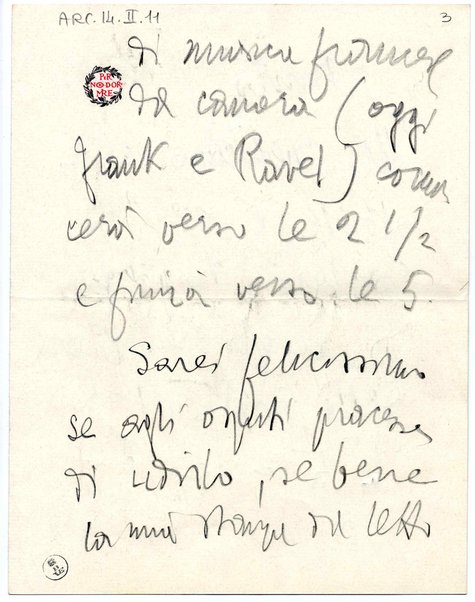 ARC. 14. II. 11
3
di musica francese
PER
NON DOR
MIRE
da camera (oggi
Frank e Ravel) comin
cerà verso le 2 1/2
e finirà verso le 5.
Sarei felicissimo
se agli ospiti piacesse
di udirlo, se bene
la mia stanza del letto